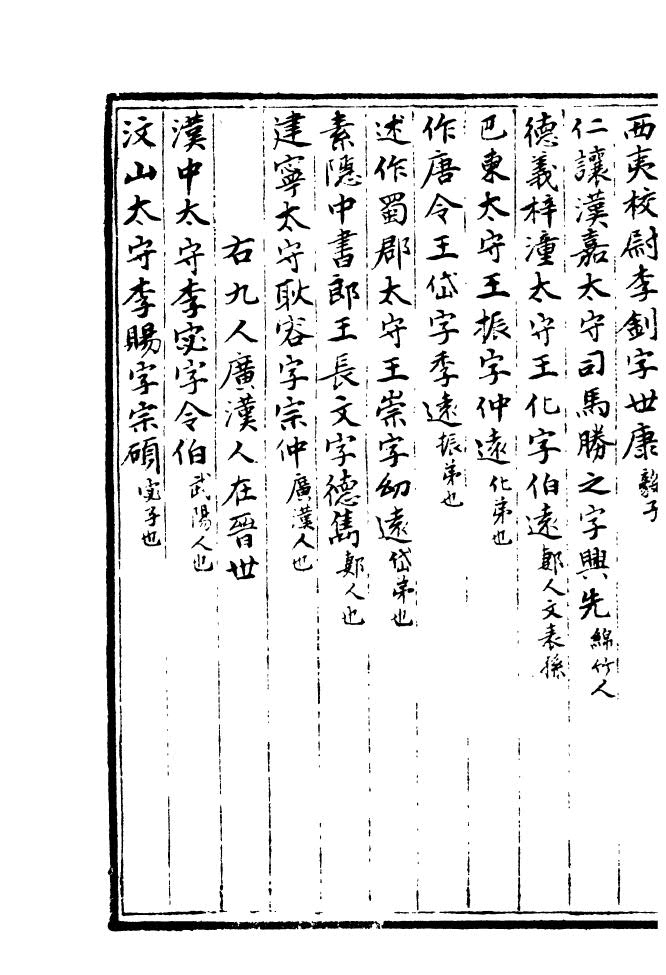 西夷校尉李釗字世康毅子
仁讓漢嘉太守司馬勝之字興先綿竹人
德義梓潼太守王化字伯遠郪人文表孫
巴東太守王振字仲遠化弟也
作唐令王岱字季遠振弟也
述作蜀郡太守王崇字幼遠岱弟也
素隱中書郎王長文字德雋郪人也
建寧太守耿容字宗仲廣漢人也
右九人廣漢人在晉世
漢中太守李宓字令伯武陽人也
汶山太守李賜字宗碩宓子也